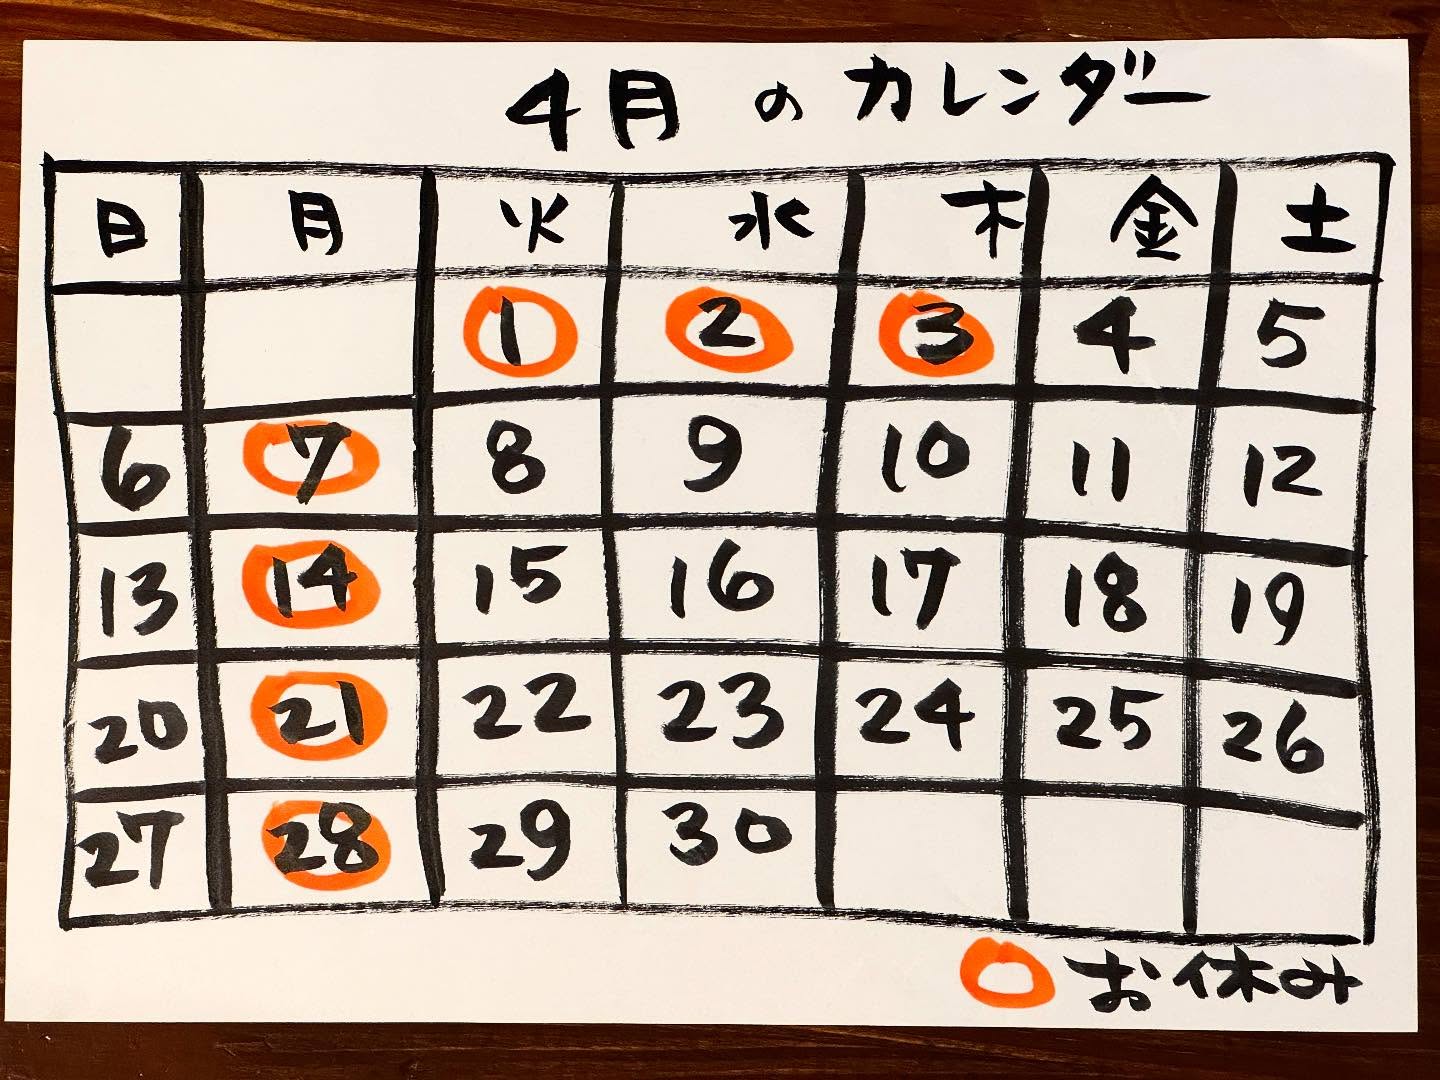 4月 の カレンダー
日 月 火 水 木 金 土
1 2 3 4 5
6 7 8 9 10 11 12
13 14 15 16 17 18 19
20 21 22 23 24 25 26
27 28 29 30
お休み